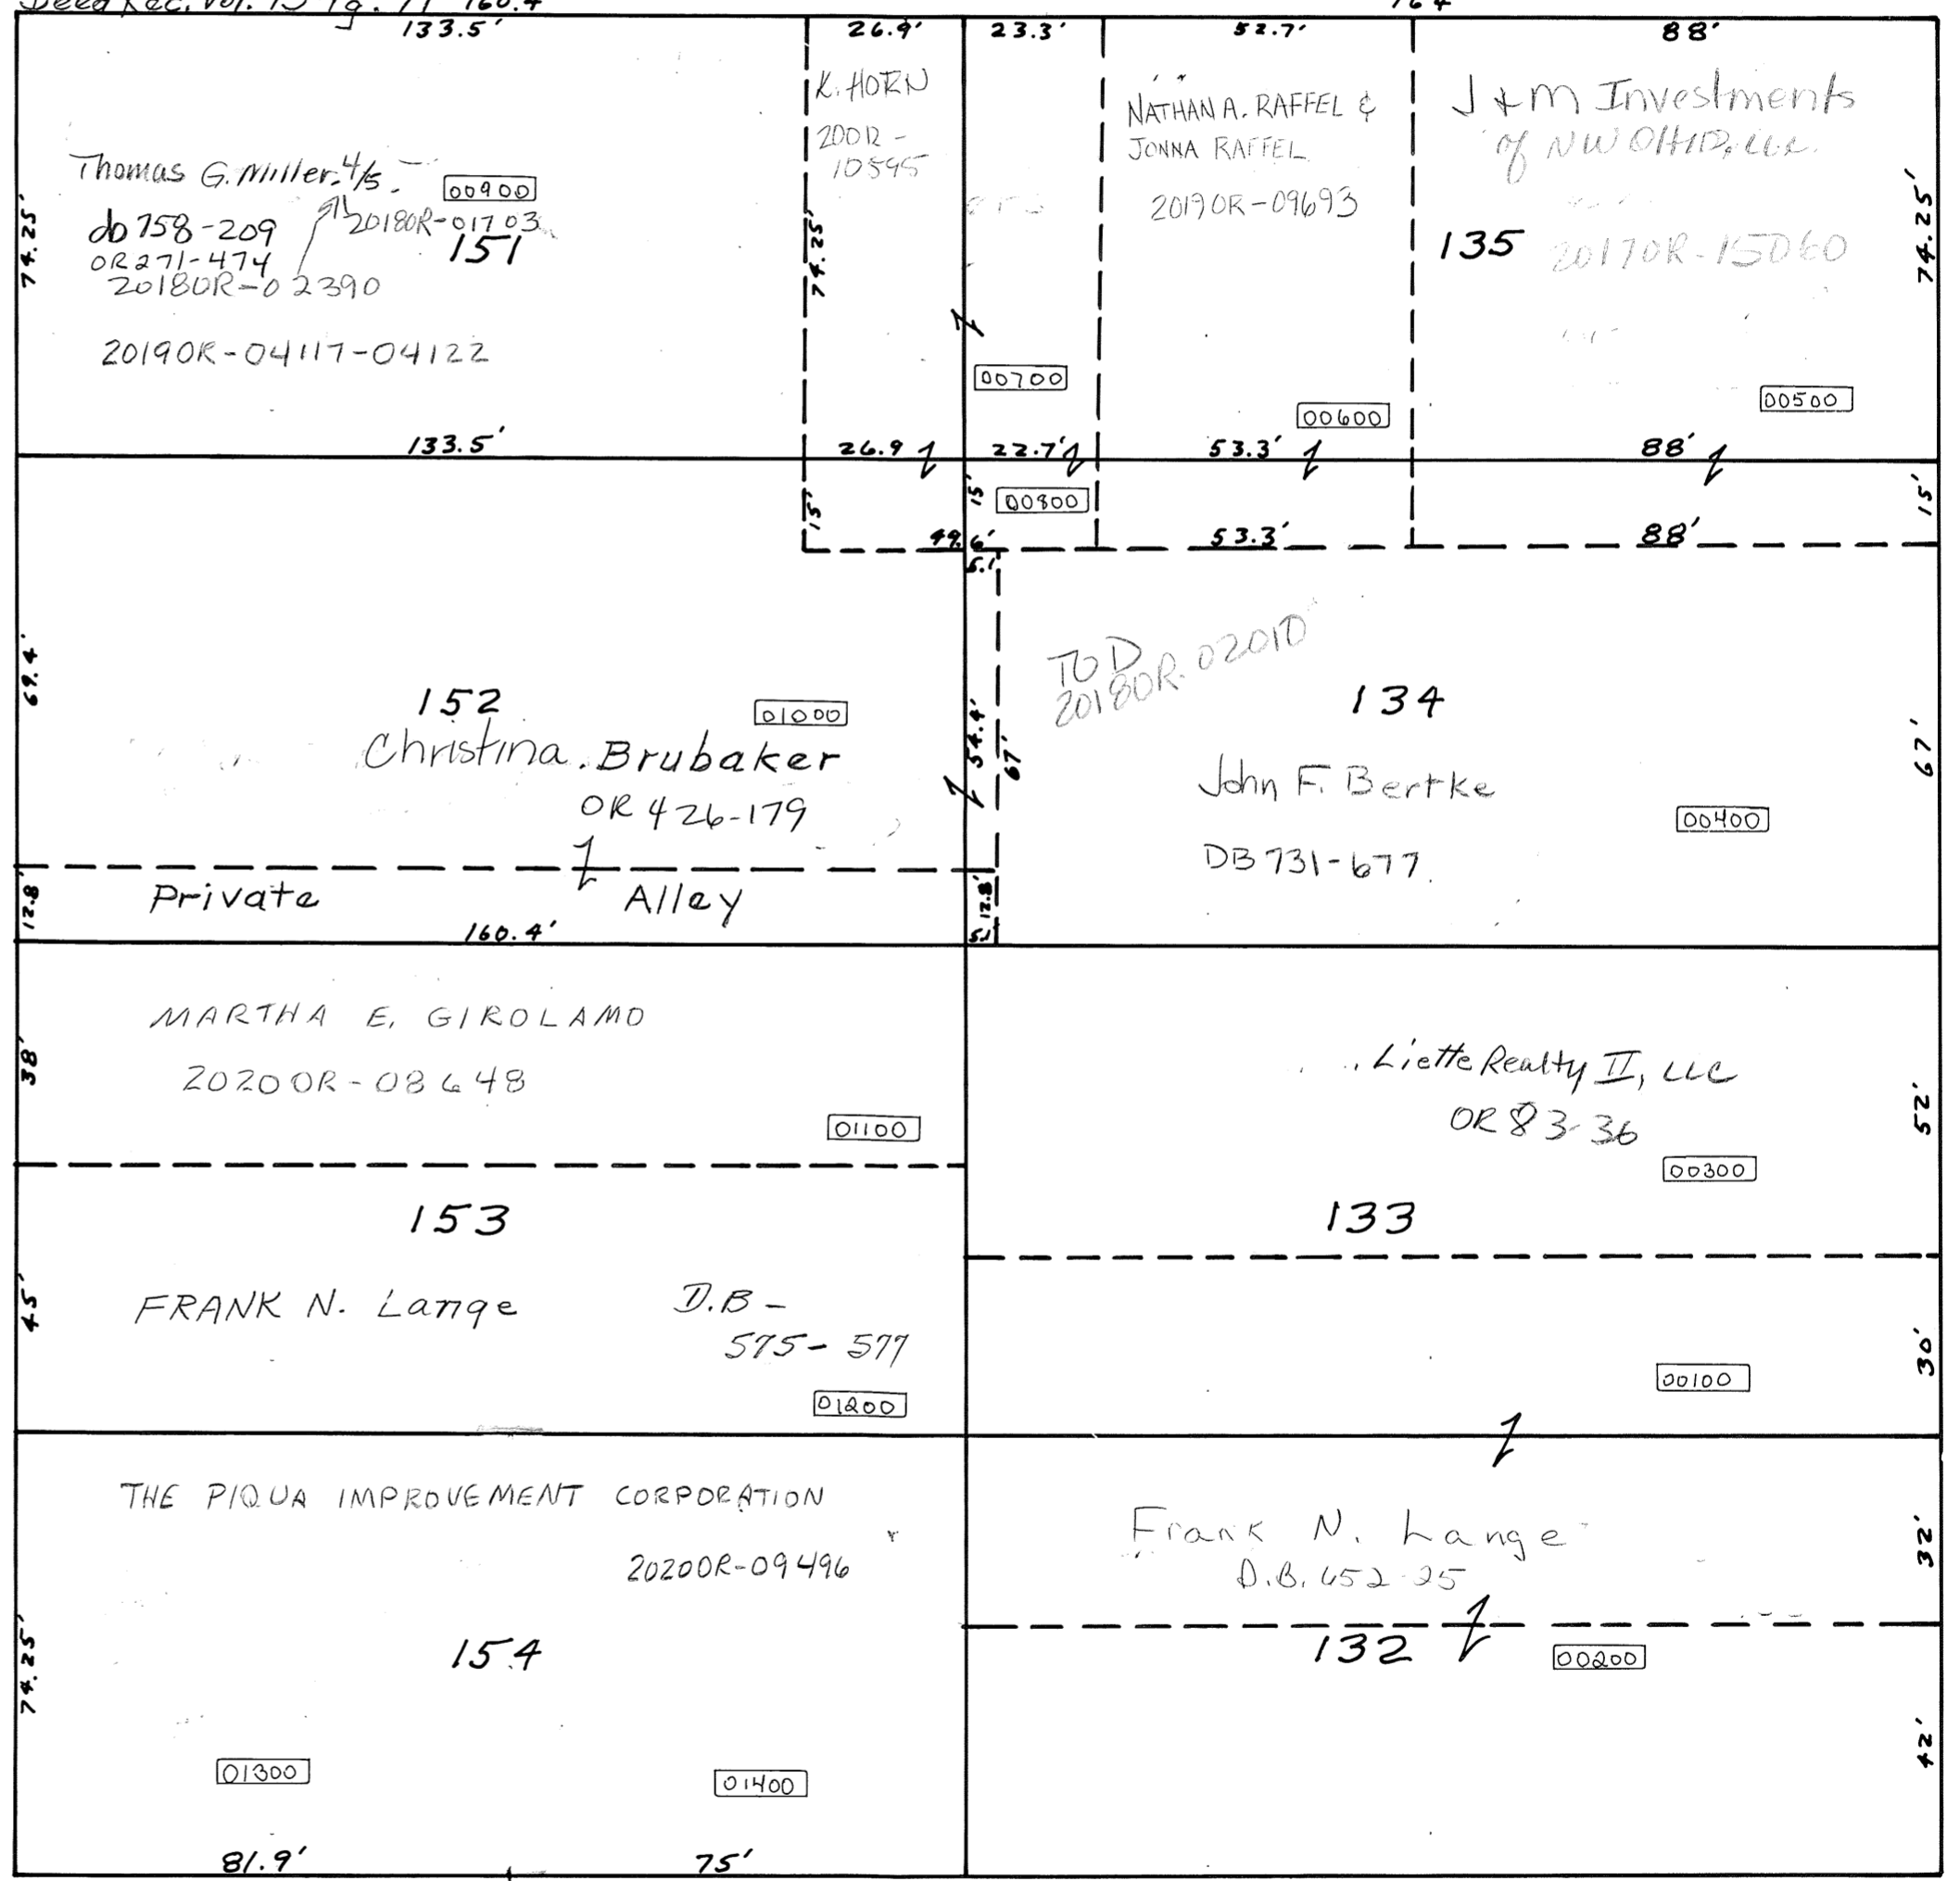 Deed Rec. Vol. 15 Pg. 77 160.4
164
133.5'
26.9'
23.3'
52.7'
88'
K. HORN
200R-
10545
NATHAN A. RAFFEL &
JONNA RAFFEL
20190R-09693
J & M Investments
of NW OHIO, LLC.
20170R-15060
135
Thomas G. Miller 4/5
00900
db 758-209
20180R-01703
OR 271-474
151
20180R-02390
20190R-04117-04122
74.25'
74.25'
74.25'
00700
00600
00500
133.5'
26.9
22.7'
53.3'
88'
15'
15'
00800
15'
49.6'
53.3'
88'
5.1
69.4'
152
01000
Christina. Brubaker
OR 426-179
54.4'
67'
TOD
20180R-02010
134
John F. Bertke
00400
DB 731-677.
67'
Private Alley
12.8'
160.4'
12.8'
5.1
MARTHA E. GIROLAMO
20200R-08648
38'
01100
Liette Realty II, LLC
OR 83-36
52'
00300
153
133
FRANK N. Lange
D.B-
575-577
45'
01200
30'
00100
THE PIQUA IMPROVEMENT CORPORATION
20200R-09496
154
74.25'
Frank N. Lange
D.B. 652-25
32'
132
00200
42'
01300
01400
81.9'
75'